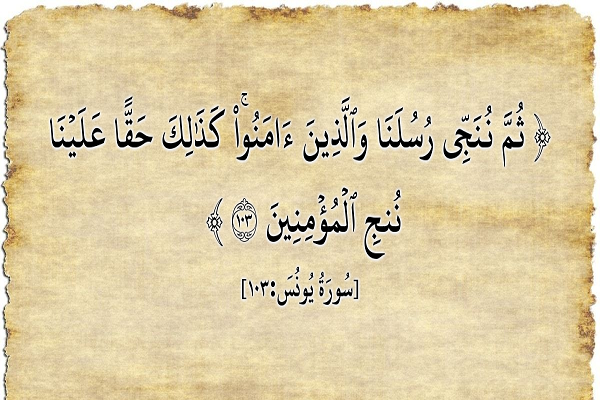 ﴿ ثُمَّ نُنَجِّى رُسُلَنَا وَٱلَّذِينَ ءَامَنُوا۟ ۚ كَذَٰلِكَ حَقًّا عَلَيْنَا
نُنجِ ٱلْمُؤْمِنِينَ ۝١٠٣ ﴾
[سُورَةُ يُونُسَ:١٠٣]